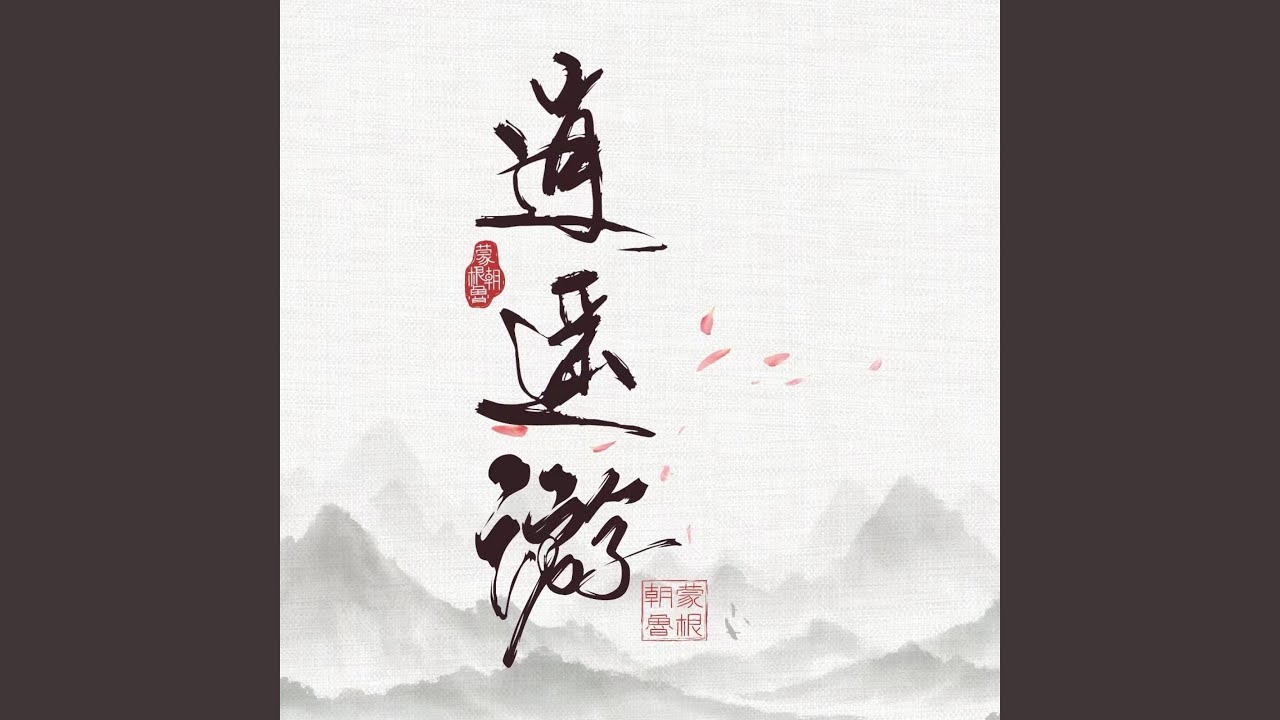 逍遥游
蒙根朝魯
蒙根朝魯